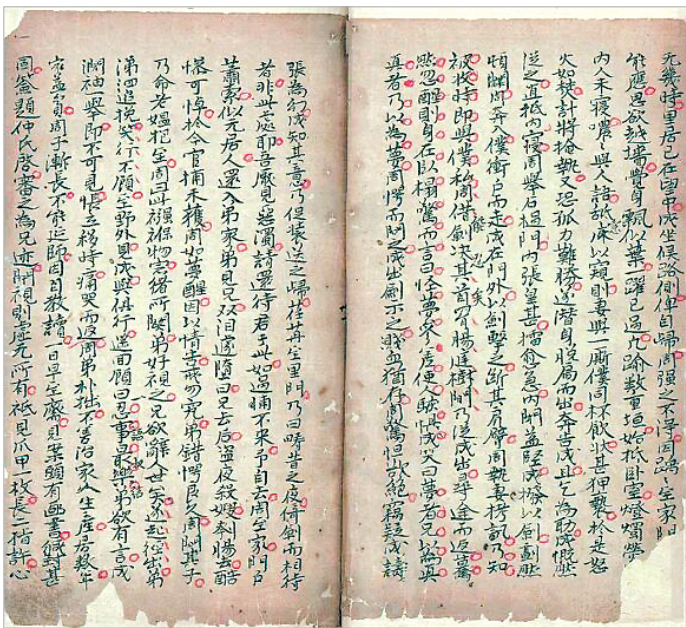 无幾時里居已在目中成坐候路側俾自歸周強之不得因踽踽至家門
能應思欲越墻覺身飄似葉一躍已過凡踰數重垣始抵卧室燈燭熒
內人未寢噥噥與人語舐窓以窺則妻與一廝僕同杯飲狀甚狎褻於是怒
火如焚計將掩執又恐孤力難勝遂潛身脫扃而出奔告成且乞為助成慨然
從之直抵內寢周舉石撾門內張皇甚擂愈急內閉益堅成撥以劍劃然
頓闢周奔入僕衝户而走成在門外以劍擊之斷其肩臂周執妻拷訊乃知
被收時即與僕私周借劍决其首罥腸庭樹間乃從成出尋途而返驀
然忽醒則身在卧榻驚而言曰怪夢參差使人駭惧成笑曰夢者兄以為真
真者乃以為夢周愕而問之成出劍示之濺血猶存周驚怛欲絕竊疑成譸
張為幻成知其意乃促裝送之歸荏苒至里門乃曰疇昔之夜倚劍而相待
者非此處耶吾厭見惡濁請還待君于此如過晡不來予自去周至家門户
蕭索似无居人還入弟家弟見兄双泪遽墮曰兄去后盜夜殺嫂刳腸去酷
慘可悼於今官捕未獲周如夢醒因以情告戒勿究弟錯愕良久周問其子
乃命老媪抱至周曰此襁褓物宗緒所関弟好視之兄欲辭人世矣遂起徑出弟
涕泗追挽笑行不顧至野外見成與俱行遥回顧曰忍事最樂弟欲有言成
濶袖一舉即不可見悵立移時痛哭而返周弟朴拙不善治家人生産居数年
家益貧周子漸長不能延師因自教讀一日早至齋見案頭有函書緘封甚
固簽題仲氏啓審之為兄迹開視則虛无所有祇見爪甲一枚長二指許心